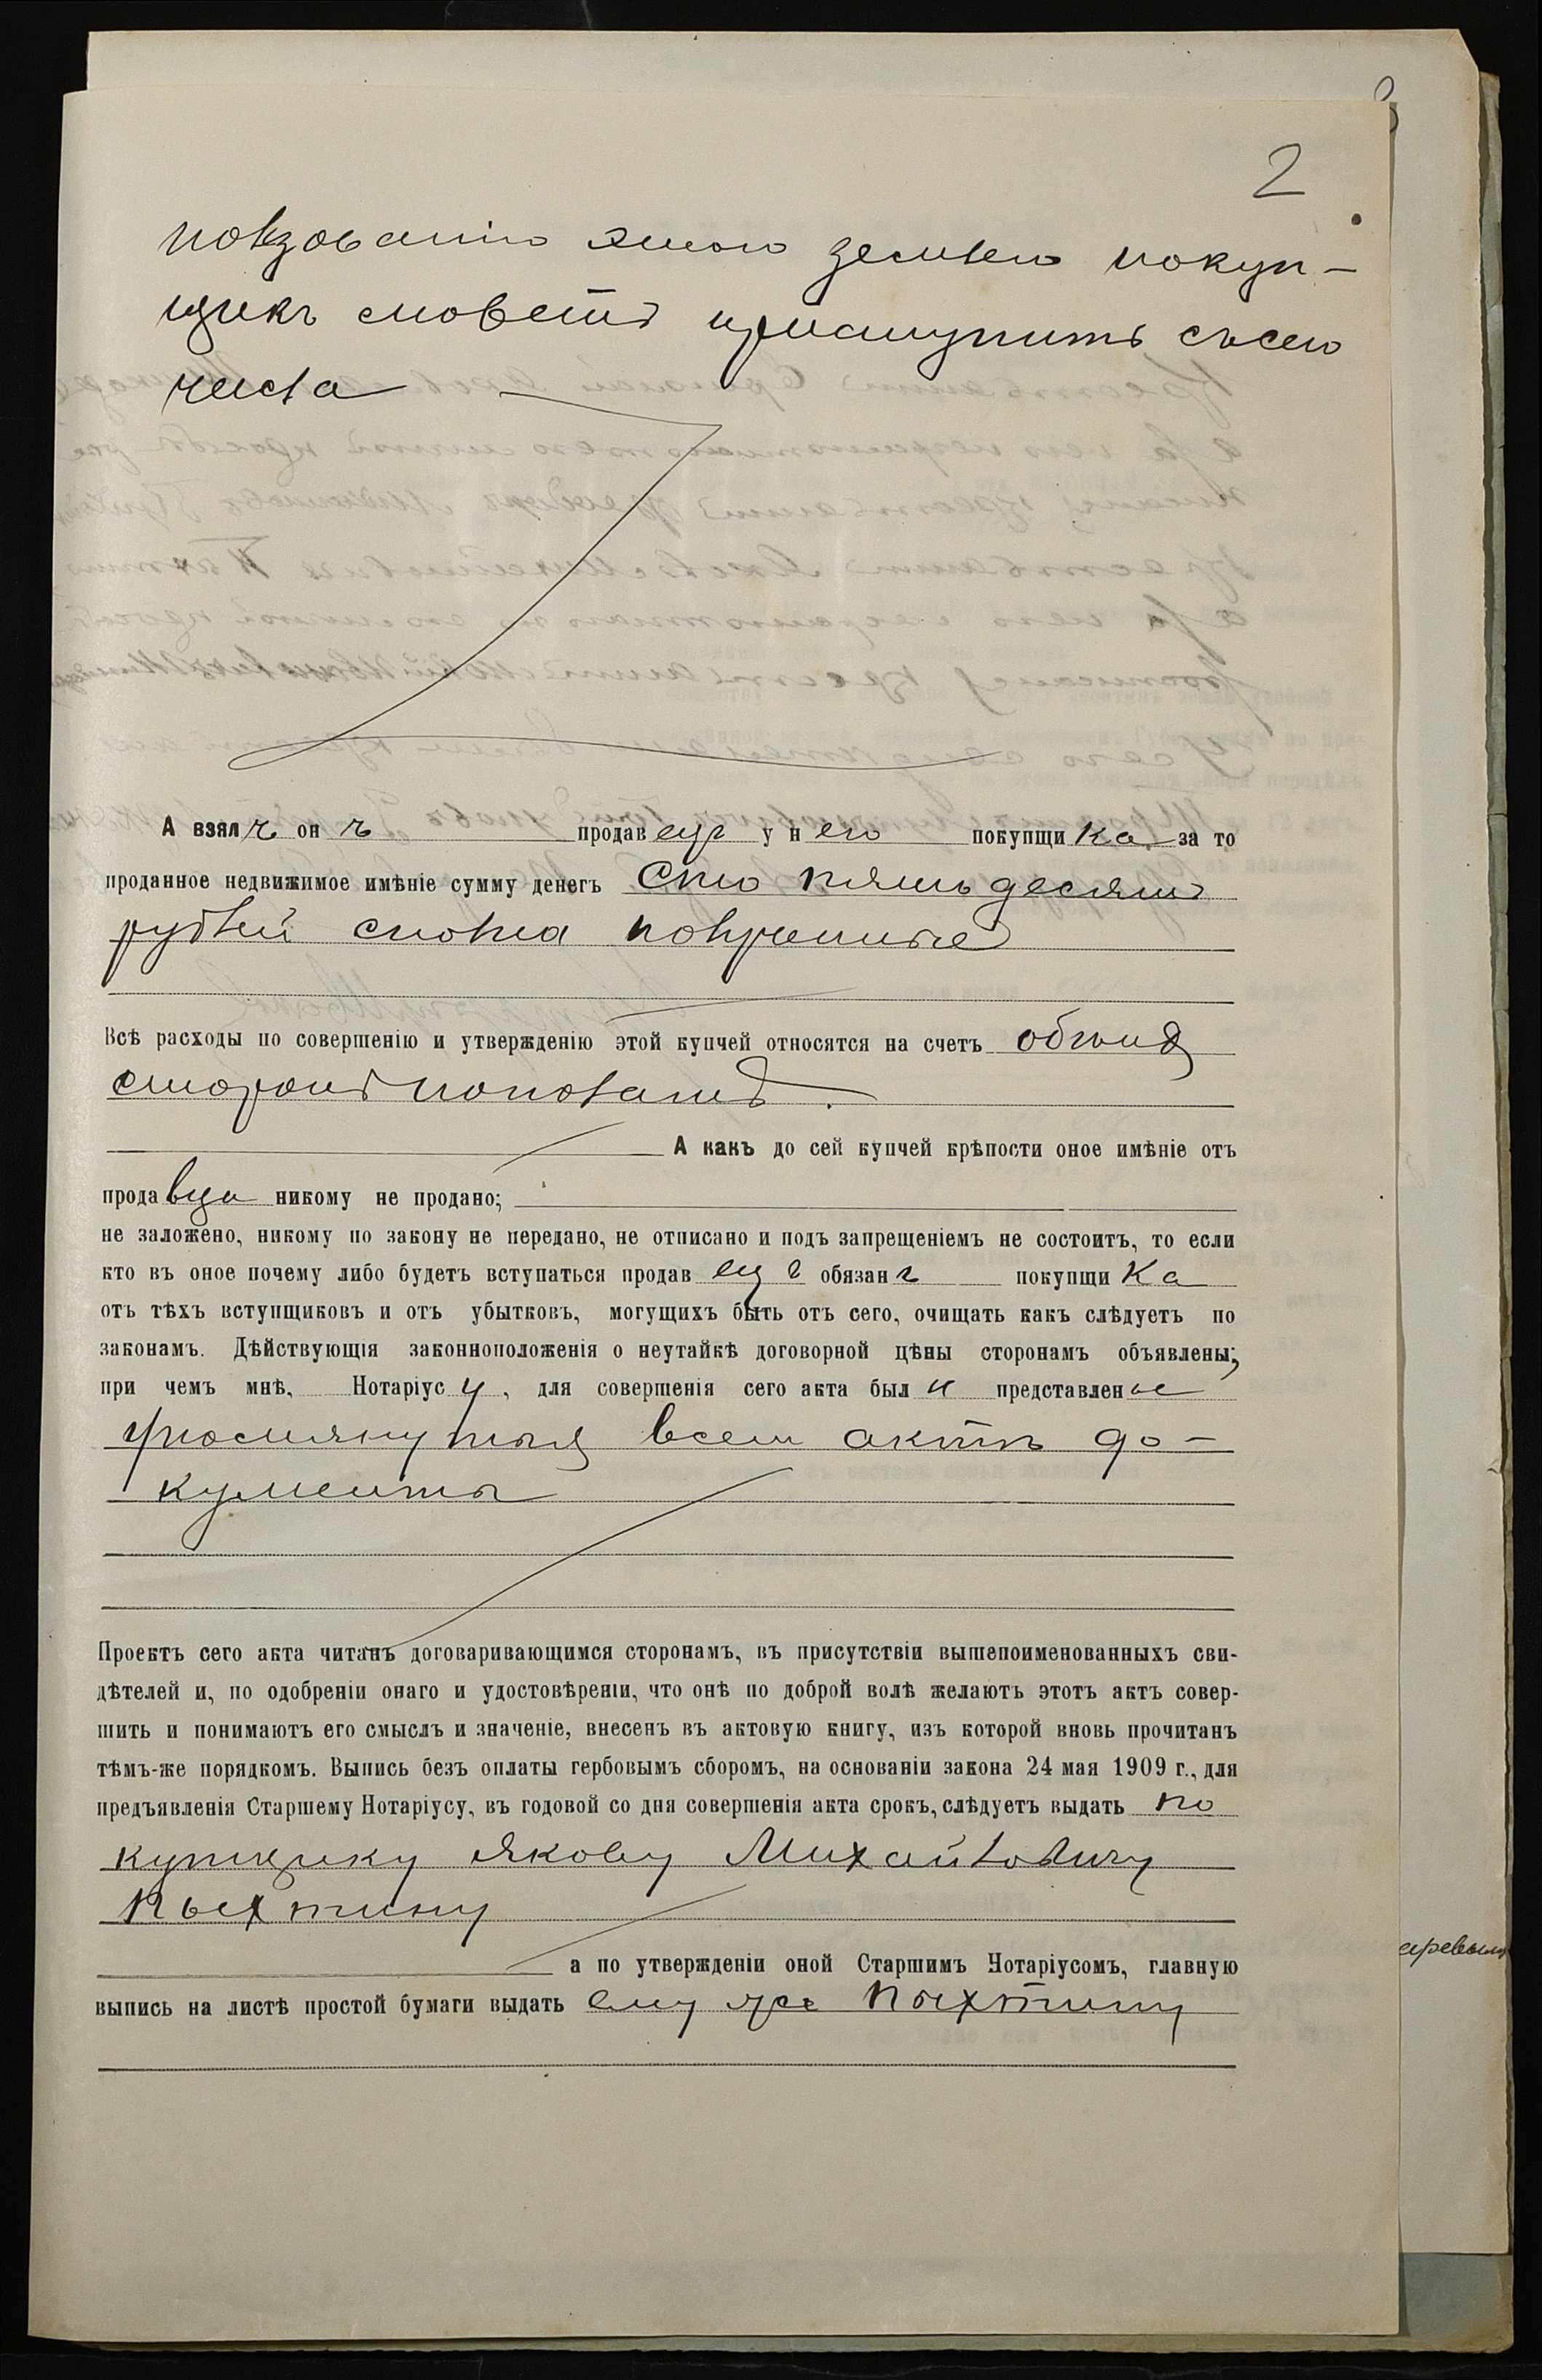 2
пользованію этою землею покуп-
щикъ можетъ приступить съ сего
числа
А взялъ онъ продавецъ у него покупщика за то
проданное недвижимое имѣніе сумму денегъ Сто пятьдесятъ
рублей сполна полученные
Всѣ расходы по совершенію и утвержденію этой купчей относятся на счетъ обѣихъ
сторонъ пополамъ.
А какъ до сей купчей крѣпости оное имѣніе отъ
продавца никому не продано;
не заложено, никому по закону не передано, не отписано и подъ запрещеніемъ не состоитъ, то если
кто въ оное почему либо будетъ вступаться продавецъ обязанъ покупщика
отъ тѣхъ вступщиковъ и отъ убытковъ, могущихъ быть отъ сего, очищать какъ слѣдуетъ по
законамъ. Дѣйствующія законноположенія о неутайкѣ договорной цѣны сторонамъ объявлены;
при чемъ мнѣ, Нотаріусу, для совершенія сего акта были представлены
упомянутыя въ семъ актѣ до-
кументы
Проектъ сего акта читанъ договаривающимся сторонамъ, въ присутствіи вышепоименованныхъ сви-
дѣтелей и, по одобреніи онаго и удостовѣреніи, что онѣ по доброй волѣ желаютъ этотъ актъ совер-
шить и понимаютъ его смыслъ и значеніе, внесенъ въ актовую книгу, изъ которой вновь прочитанъ
тѣмъ-же порядкомъ. Выпись безъ оплаты гербовымъ сборомъ, на основаніи закона 24 мая 1909 г., для
предъявленія Старшему Нотаріусу, въ годовой со дня совершенія акта срокъ, слѣдуетъ выдать по
купщику Якову Михайловичу
Пыхтину
а по утвержденіи оной Старшимъ Нотаріусомъ, главную
выпись на листѣ простой бумаги выдать ему же Пыхтину